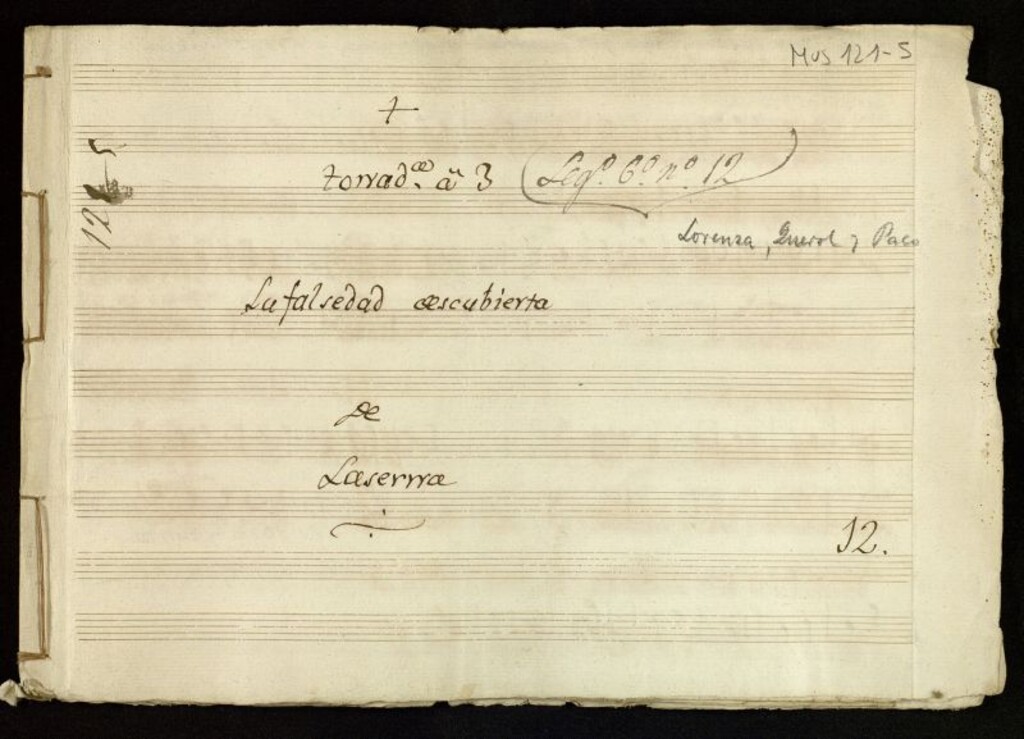 Mus 121-5
+
tonad.a a 3 (Leg.o 6.o n.o 12)
121-5
Lorenza, Querol y Paco
La falsedad descubierta
de
Laserna
12.